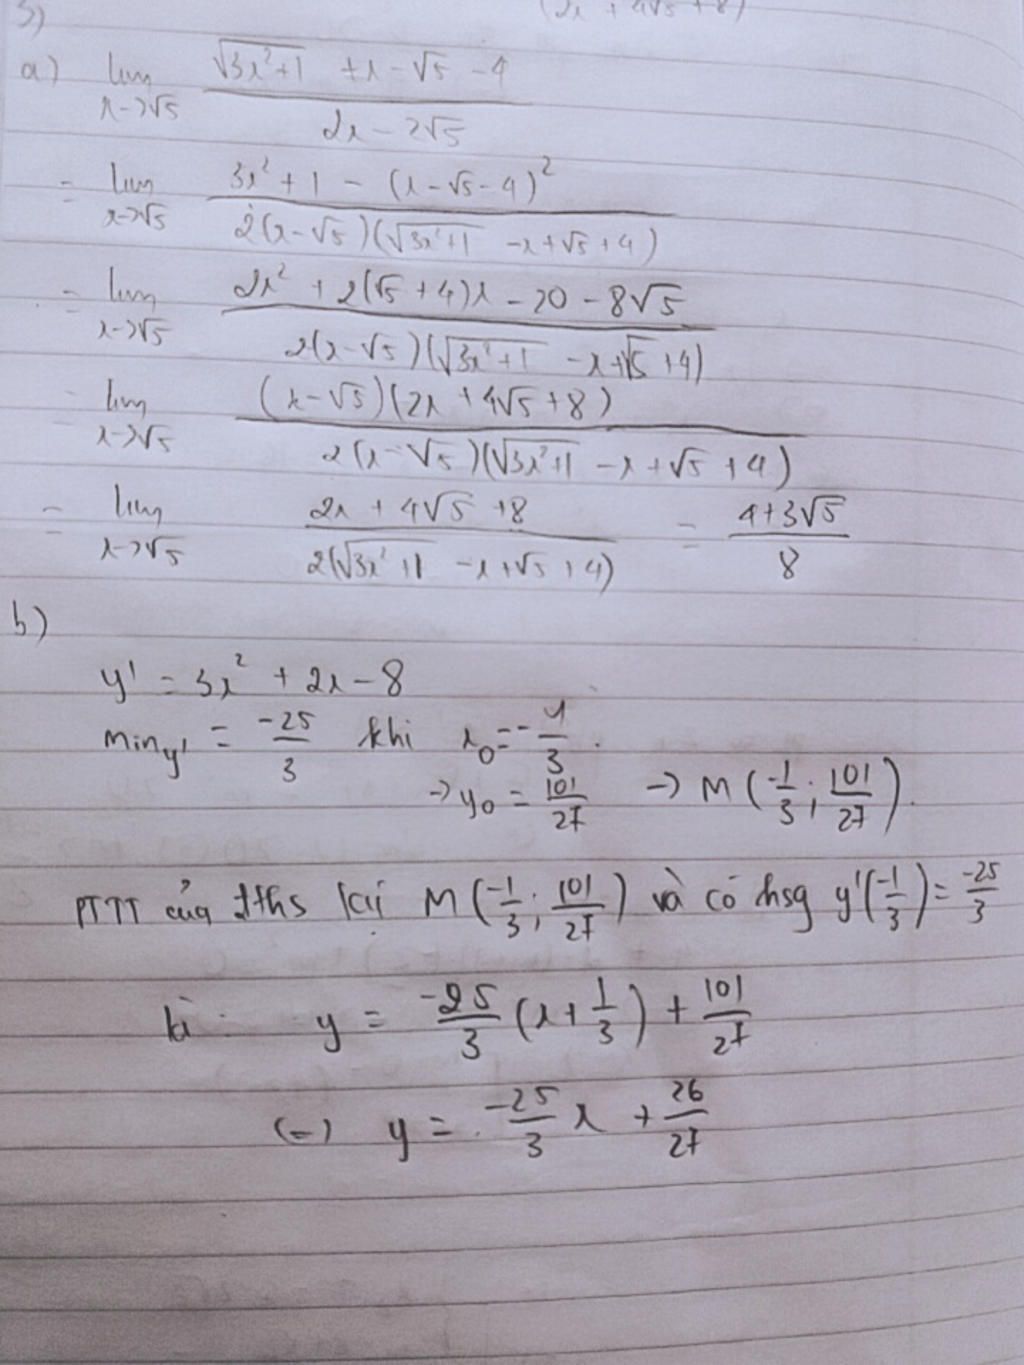 5)
a) lim x->√5 (√(3x²+1) + x - √5 - 4)/(2x - 2√5)
= lim x->√5 (3x² + 1 - (x - √5 - 4)²)/(2(x - √5)(√(3x²+1) - x + √5 + 4))
= lim x->√5 (2x² + 2(√5 + 4)x - 20 - 8√5)/(2(x - √5)(√(3x²+1) - x + √5 + 4))
= lim x->√5 ((x - √5)(2x + 4√5 + 8))/(2(x - √5)(√(3x²+1) - x + √5 + 4))
= lim x->√5 (2x + 4√5 + 8)/(2(√(3x²+1) - x + √5 + 4)) = (4 + 3√5)/8
b)
y' = 3x² + 2x - 8
min y' = -25/3 khi x₀ = -1/3.
-> y₀ = 101/27 -> M(-1/3; 101/27).
PTTT của đths tại M(-1/3; 101/27) và có hsg y'(-1/3) = -25/3
là: y = -25/3 (x + 1/3) + 101/27
(=) y = -25/3 x + 26/27